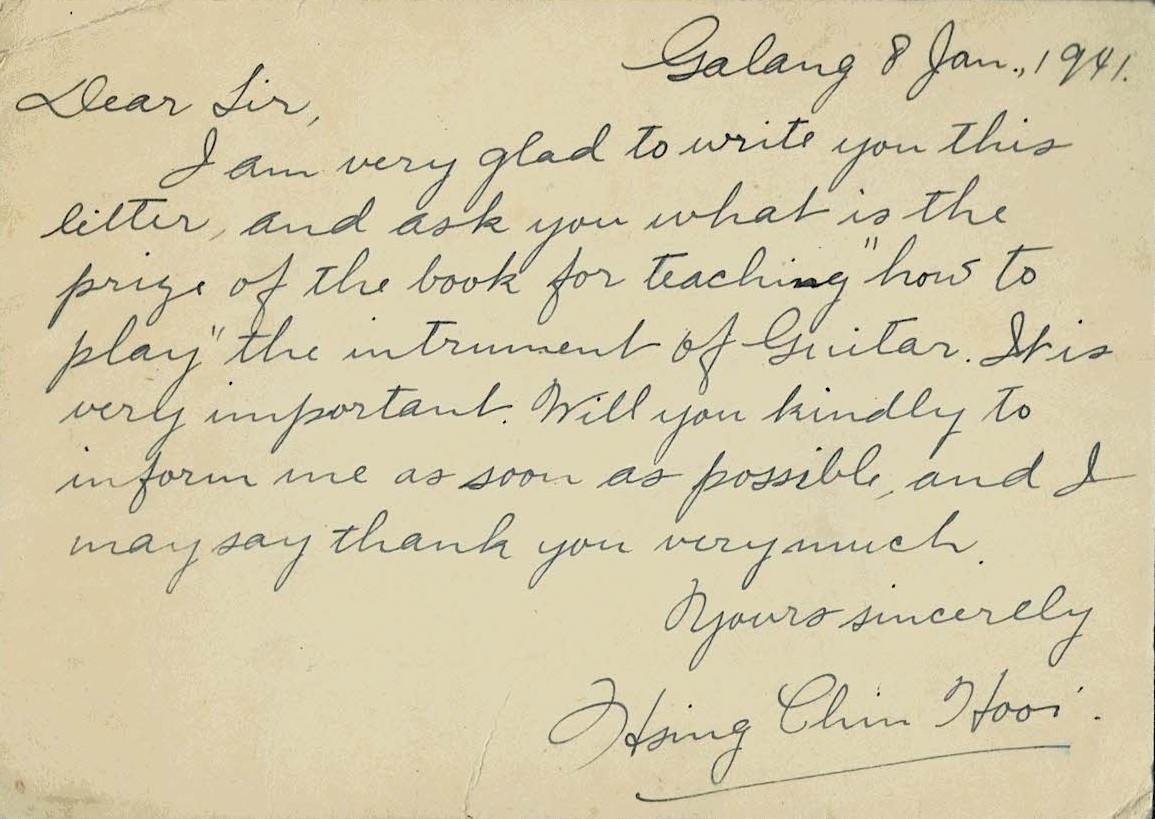 Galang 8 Jan., 1941.
Dear Sir,
I am very glad to write you this
letter, and ask you what is the
prize of the book for teaching "how to
play" the intrument of Guitar. It is
very important. Will you kindly to
inform me as soon as possible, and I
may say thank you very much.
Yours sincerely
Hsing Chin Hooi.